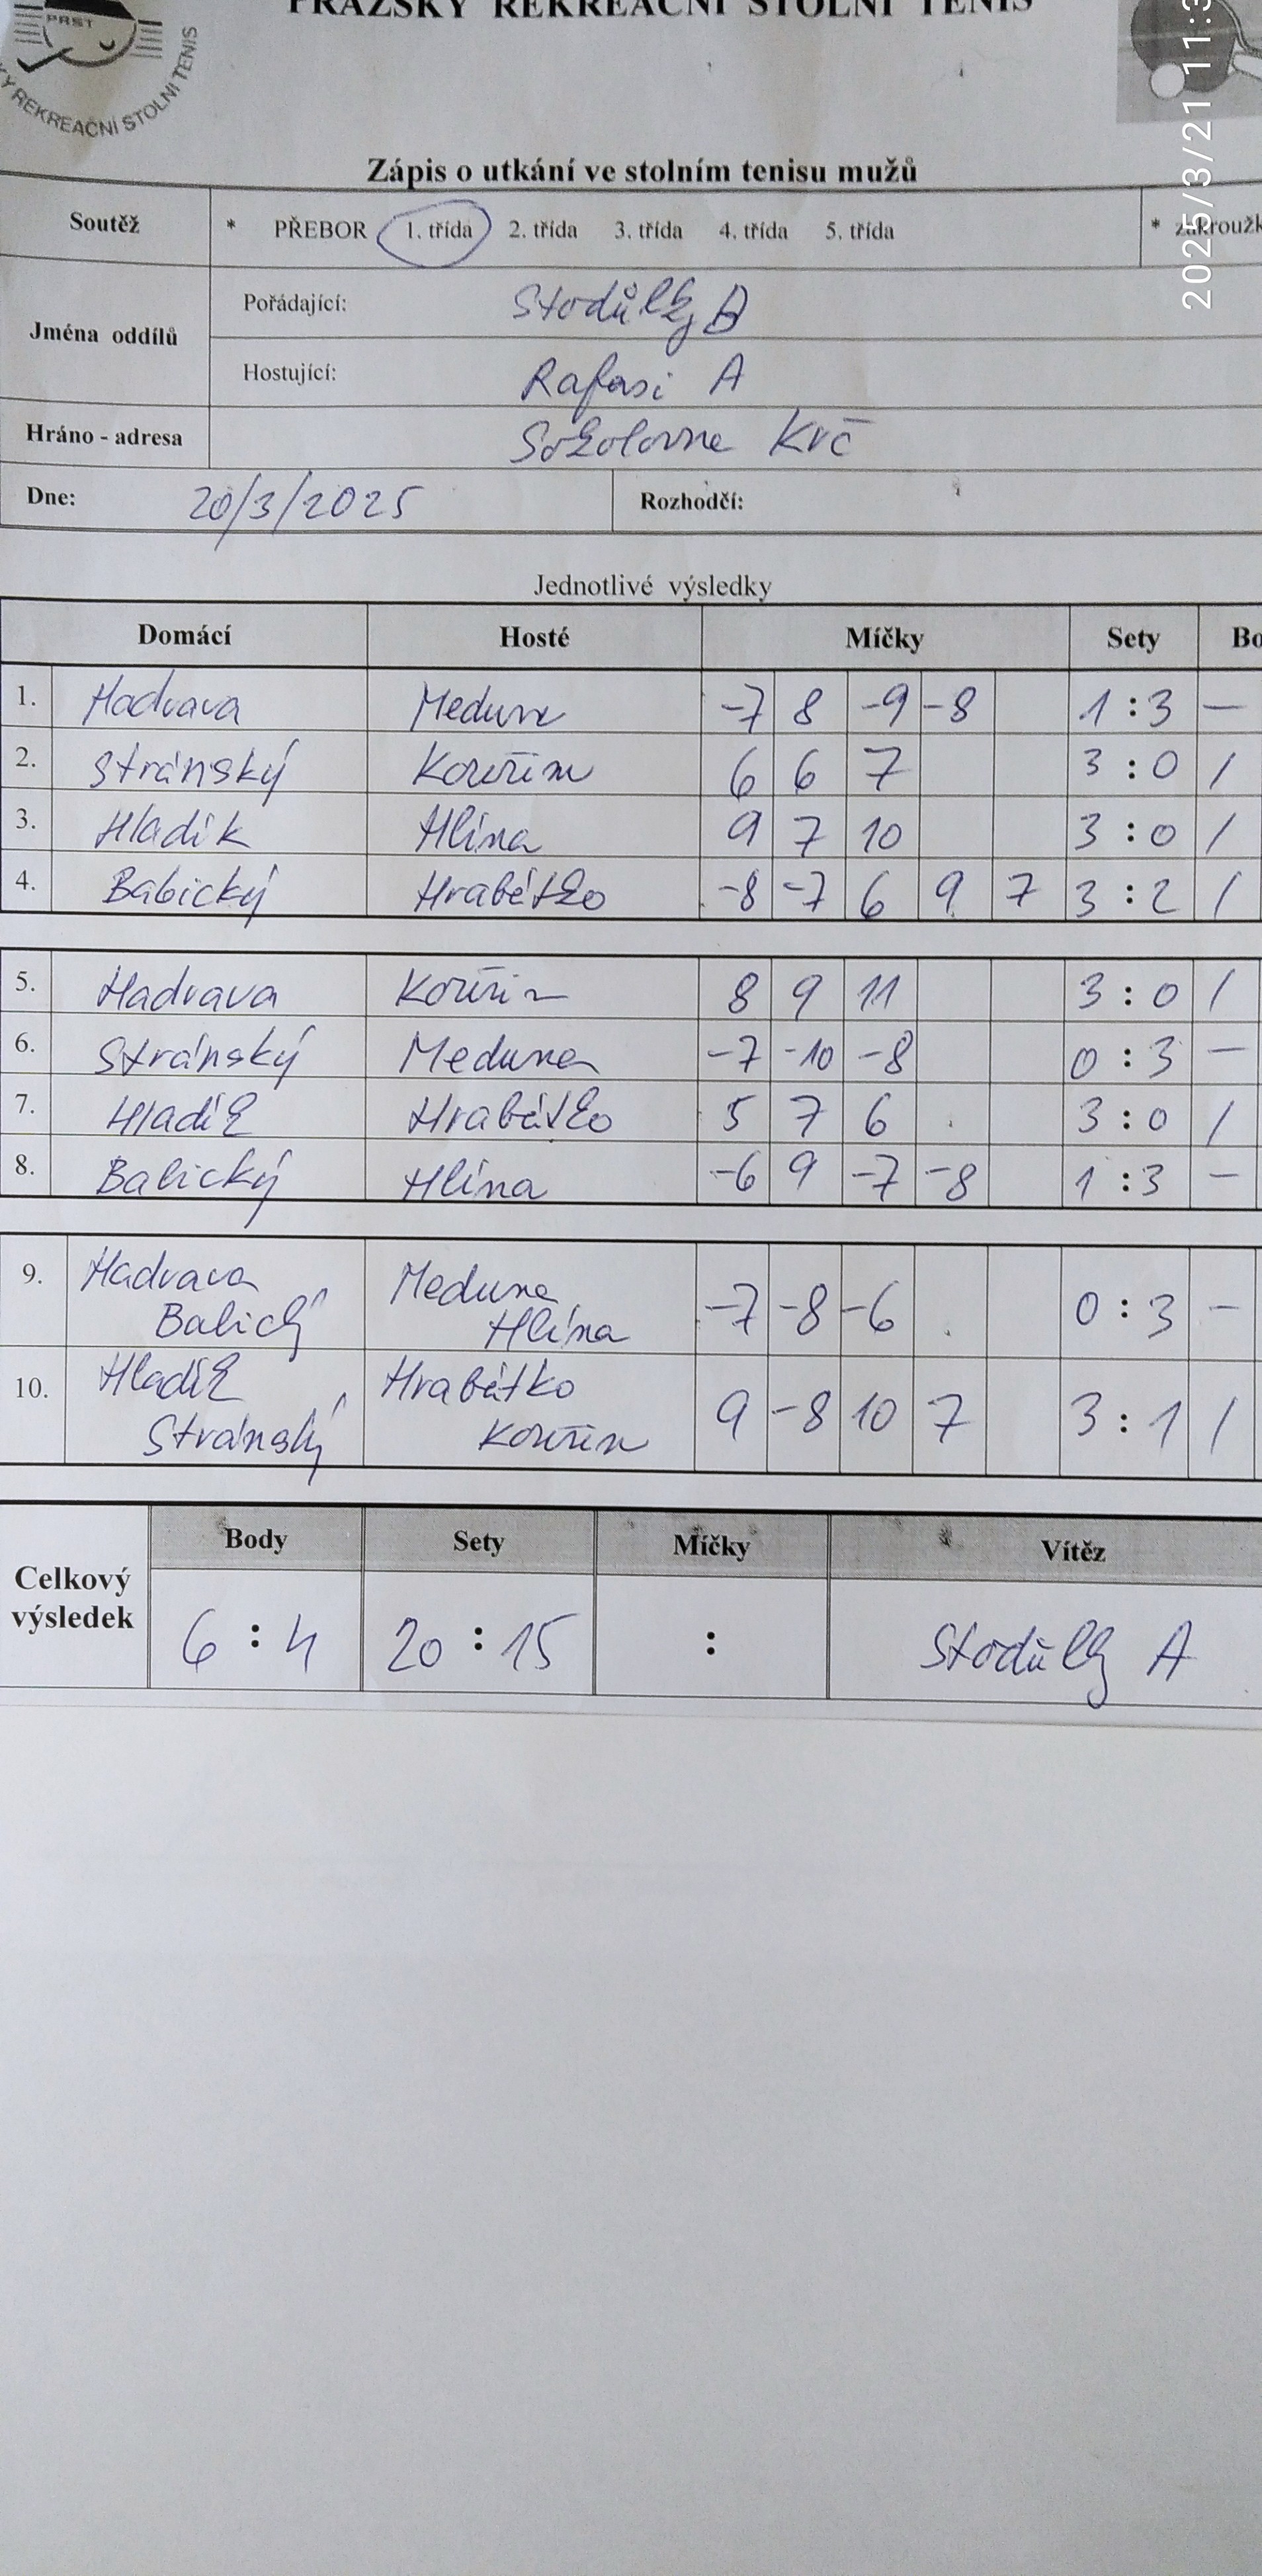 PRAŽSKÝ REKREAČNÍ STOLNÍ TENIS
PRST
KÝ REKREAČNÍ STOLNÍ TENIS
2025/3/21 11:3
Zápis o utkání ve stolním tenisu mužů
Soutěž * PŘEBOR 1. třída 2. třída 3. třída 4. třída 5. třída * zakroužk
Jména oddílů
Pořádající: Stodůlky
Hostující: Rafasi A
Hráno - adresa Sokolovna Krč
Dne: 20/3/2025 Rozhodčí:
Jednotlivé výsledky
Domácí Hosté Míčky Sety Bo
1. Hadrava Meduna -7 8 -9 -8 1 : 3 –
2. Stránský Kouřim 6 6 7 3 : 0 1
3. Hladík Hlína 9 7 10 3 : 0 1
4. Babický Hrabětko -8 -7 6 9 7 3 : 2 1
5. Hadrava Kouřim 8 9 11 3 : 0 1
6. Stránský Meduna -7 -10 -8 0 : 3 –
7. Hladík Hrabětko 5 7 6 3 : 0 1
8. Babický Hlína -6 9 -7 -8 1 : 3 –
9. Hadrava Meduna
Babický Hlína -7 -8 -6 0 : 3 –
10. Hladík Hrabětko
Stránský Kouřim 9 -8 10 7 3 : 1 1
Body Sety Míčky Vítěz
Celkový výsledek 6 : 4 20 : 15 : Stodůlky A